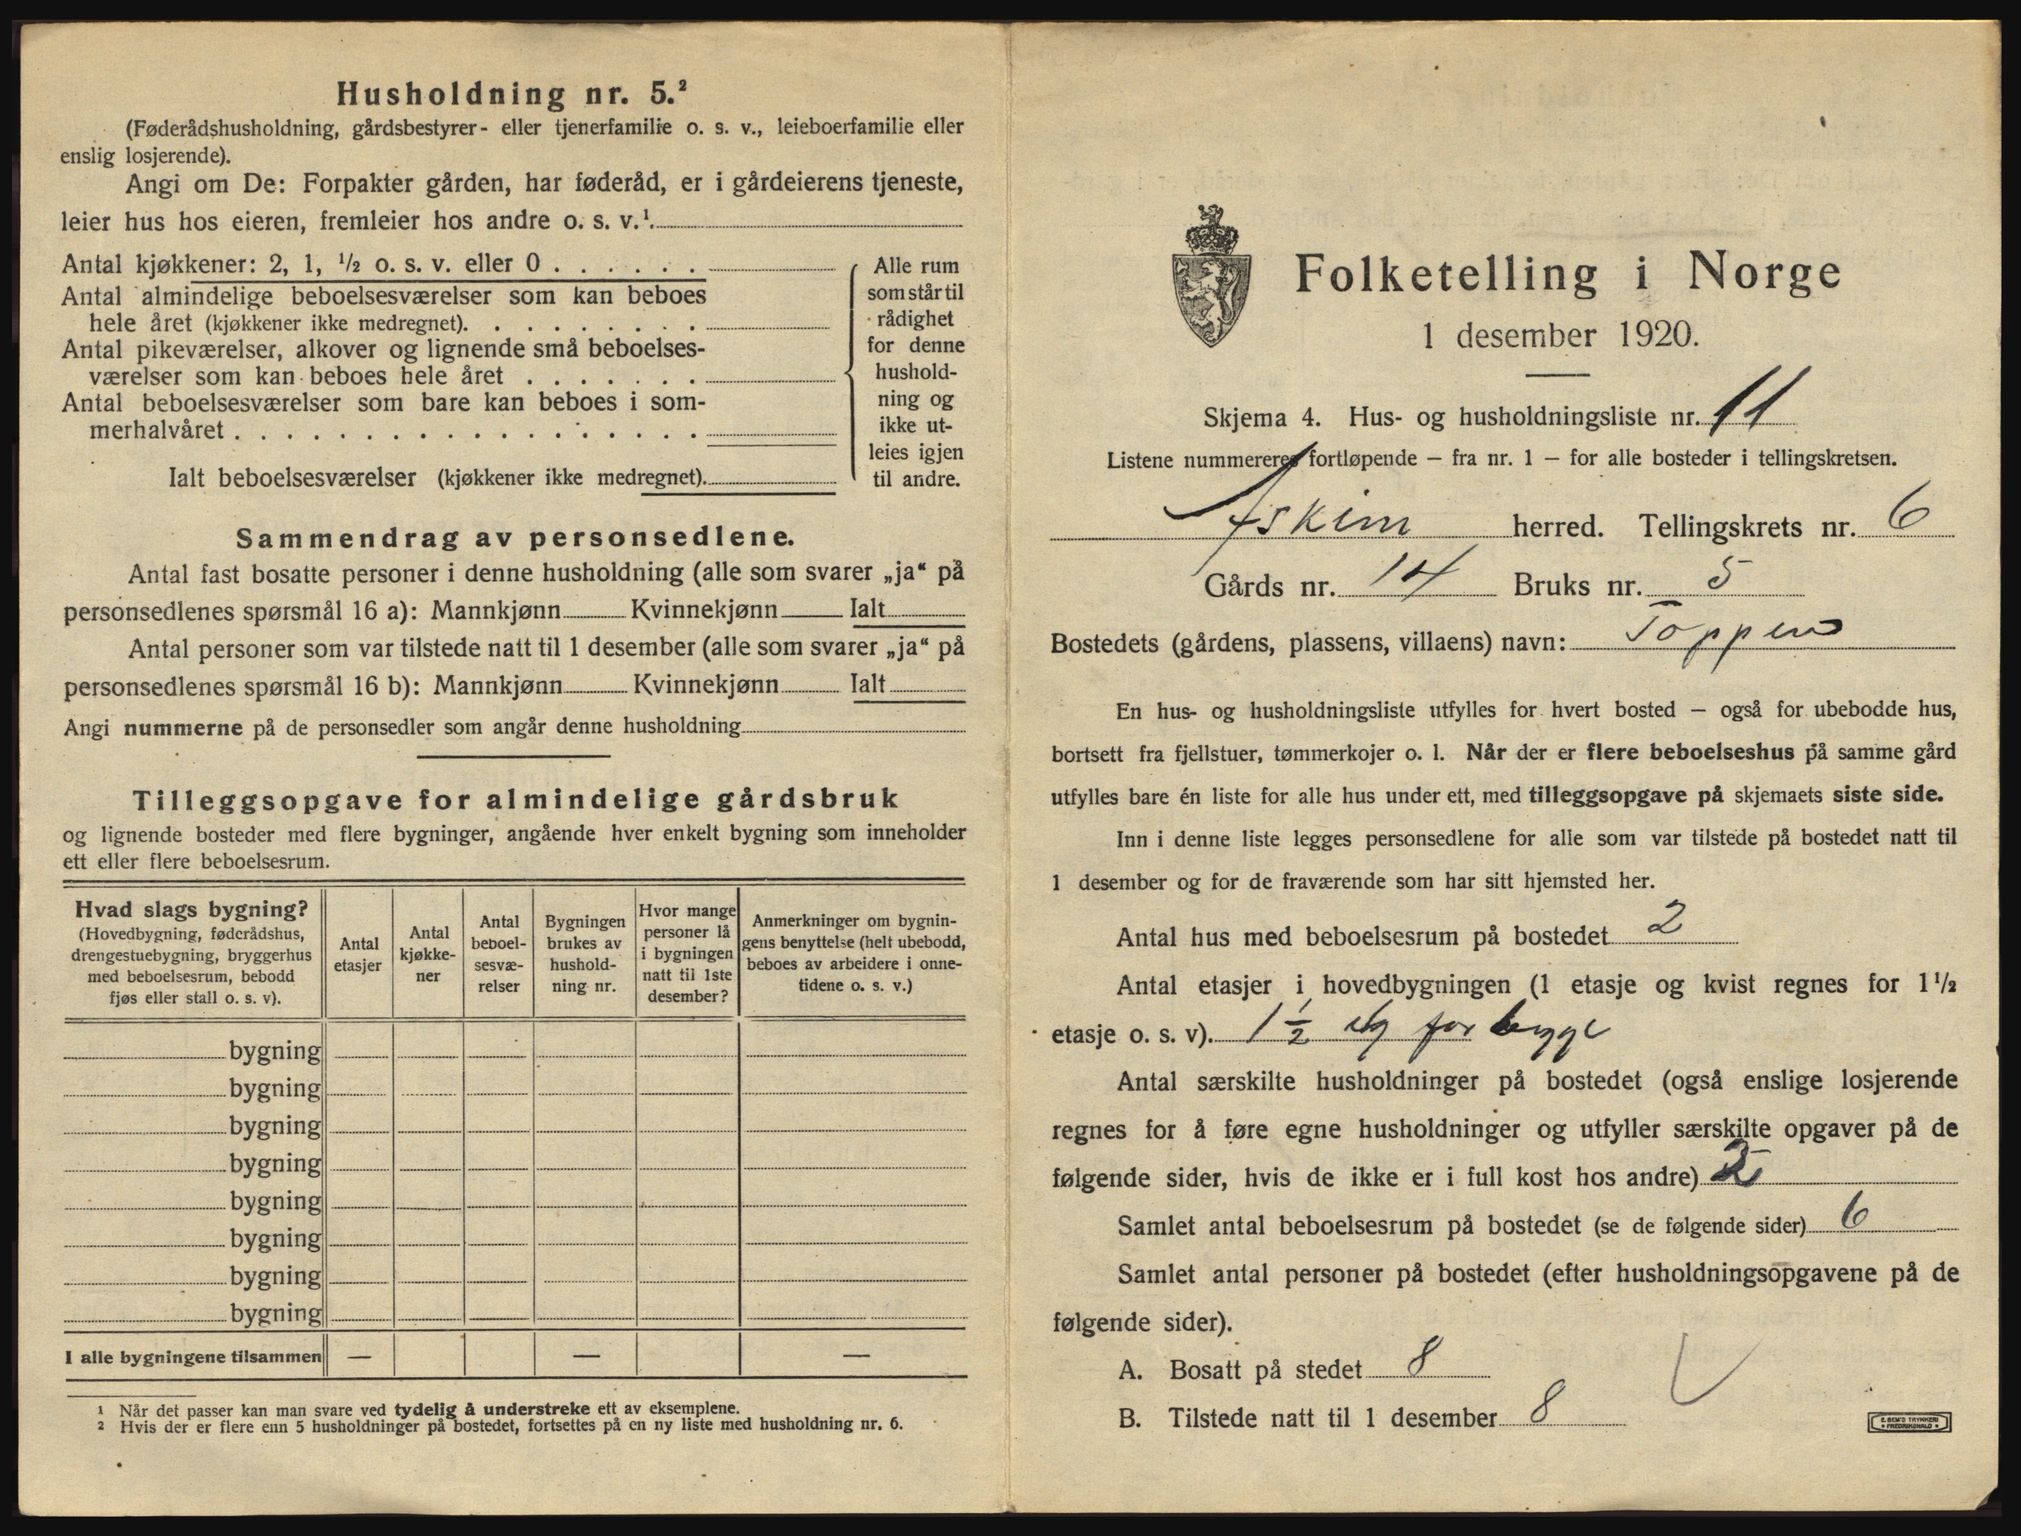 Husholdning nr. 5.²
(Føderådshusholdning, gårdsbestyrer- eller tjenerfamilie o. s. v., leieboerfamilie eller
enslig losjerende).
Angi om De: Forpakter gården, har føderåd, er i gårdeierens tjeneste,
leier hus hos eieren, fremleier hos andre o. s. v.¹.
Antal kjøkkener: 2, 1, ½ o. s. v. eller 0 . . . . . .
Antal almindelige beboelsesværelser som kan beboes
hele året (kjøkkener ikke medregnet). . . . . . . . .
Antal pikeværelser, alkover og lignende små beboelses-
værelser som kan beboes hele året . . . . . . .
Antal beboelsesværelser som bare kan beboes i som-
merhalvåret . . . . . . . . . . . . . . . . . .
Ialt beboelsesværelser (kjøkkener ikke medregnet).
Alle rum
som står til
rådighet
for denne
hushold-
ning og
ikke ut-
leies igjen
til andre.
Sammendrag av personsedlene.
Antal fast bosatte personer i denne husholdning (alle som svarer „ja“ på
personsedlenes spørsmål 16 a): Mannkjønn Kvinnekjønn Ialt
Antal personer som var tilstede natt til 1 desember (alle som svarer „ja“ på
personsedlenes spørsmål 16 b): Mannkjønn Kvinnekjønn Ialt
Angi nummerne på de personsedler som angår denne husholdning
Tilleggsopgave for almindelige gårdsbruk
og lignende bosteder med flere bygninger, angående hver enkelt bygning som inneholder
ett eller flere beboelsesrum.
Hvad slags bygning?
(Hovedbygning, føderådshus,
drengestuebygning, bryggerhus
med beboelsesrum, bebodd
fjøs eller stall o. s. v).
Antal
etasjer
Antal
kjøkke-
ner
Antal
beboel-
sesvæ-
relser
Bygningen
brukes av
hushold-
ning nr.
Hvor mange
personer lå
i bygningen
natt til 1ste
desember?
Anmerkninger om bygnin-
gens benyttelse (helt ubebodd,
beboes av arbeidere i onne-
tidene o. s. v.)
bygning
bygning
bygning
bygning
bygning
bygning
bygning
bygning
I alle bygningene tilsammen — — —
¹ Når det passer kan man svare ved tydelig å understreke ett av eksemplene.
² Hvis der er flere enn 5 husholdninger på bostedet, fortsettes på en ny liste med husholdning nr. 6.
Folketelling i Norge
1 desember 1920.
Skjema 4. Hus- og husholdningsliste nr. 11
Listene nummereres fortløpende — fra nr. 1 — for alle bosteder i tellingskretsen.
Askim herred. Tellingskrets nr. 6
Gårds nr. 14 Bruks nr. 5
Bostedets (gårdens, plassens, villaens) navn: Toppen
En hus- og husholdningsliste utfylles for hvert bosted — også for ubebodde hus,
bortsett fra fjellstuer, tømmerkojer o. l. Når der er flere beboelseshus på samme gård
utfylles bare én liste for alle hus under ett, med tilleggsopgave på skjemaets siste side.
Inn i denne liste legges personsedlene for alle som var tilstede på bostedet natt til
1 desember og for de fraværende som har sitt hjemsted her.
Antal hus med beboelsesrum på bostedet 2
Antal etasjer i hovedbygningen (1 etasje og kvist regnes for 1½
etasje o. s. v). 1½ bygge
Antal særskilte husholdninger på bostedet (også enslige losjerende
regnes for å føre egne husholdninger og utfyller særskilte opgaver på de
følgende sider, hvis de ikke er i full kost hos andre)
Samlet antal beboelsesrum på bostedet (se de følgende sider) 6
Samlet antal personer på bostedet (efter husholdningsopgavene på de
følgende sider).
A. Bosatt på stedet 8
B. Tilstede natt til 1 desember 8